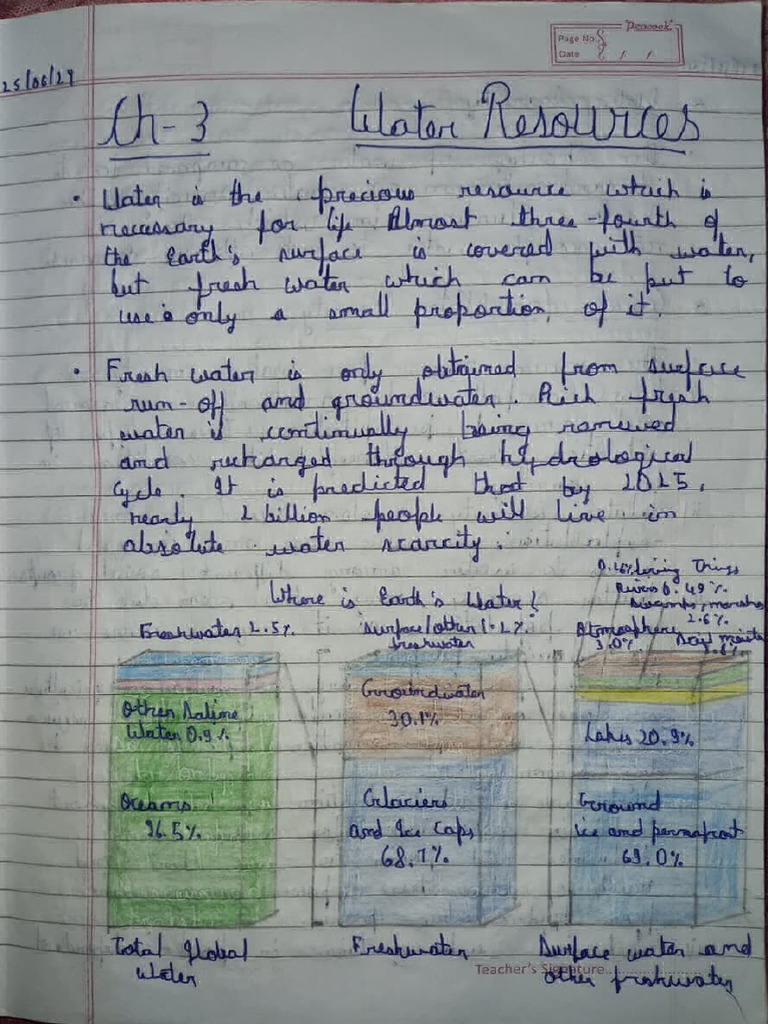 Peacock
Page No. 8
Date 8 / /
25/06/24
Ch-3 Water Resources
• Water is the precious resource which is
necessary for life Almost three-fourth of
the Earth's surface is covered with water,
but fresh water which can be put to
use is only a small proportion of it.
• Fresh water is only obtained from surface
run-off and groundwater. Rich fresh
water is continually being renewed
and recharged through hydrological
cycle. It is predicted that by 2025,
nearly 2 billion people will live in
absolute water scarcity.
Where is Earth's Water?
0.26% Living Things
Rivers 0.49%
Swamps, marshes
2.6%
Freshwater 2.5%
Surface/other 1.2%
freshwater
Atmosphere
3.0%
Soil moisture
Other Saline
Water 0.9%
Oceans
96.5%
Groundwater
30.1%
Glaciers
and Ice Caps
68.7%
Lakes 20.9%
Ground
ice and permafrost
69.0%
Total Global
Water
Freshwater
Surface water and
other freshwater
Teacher's Signature